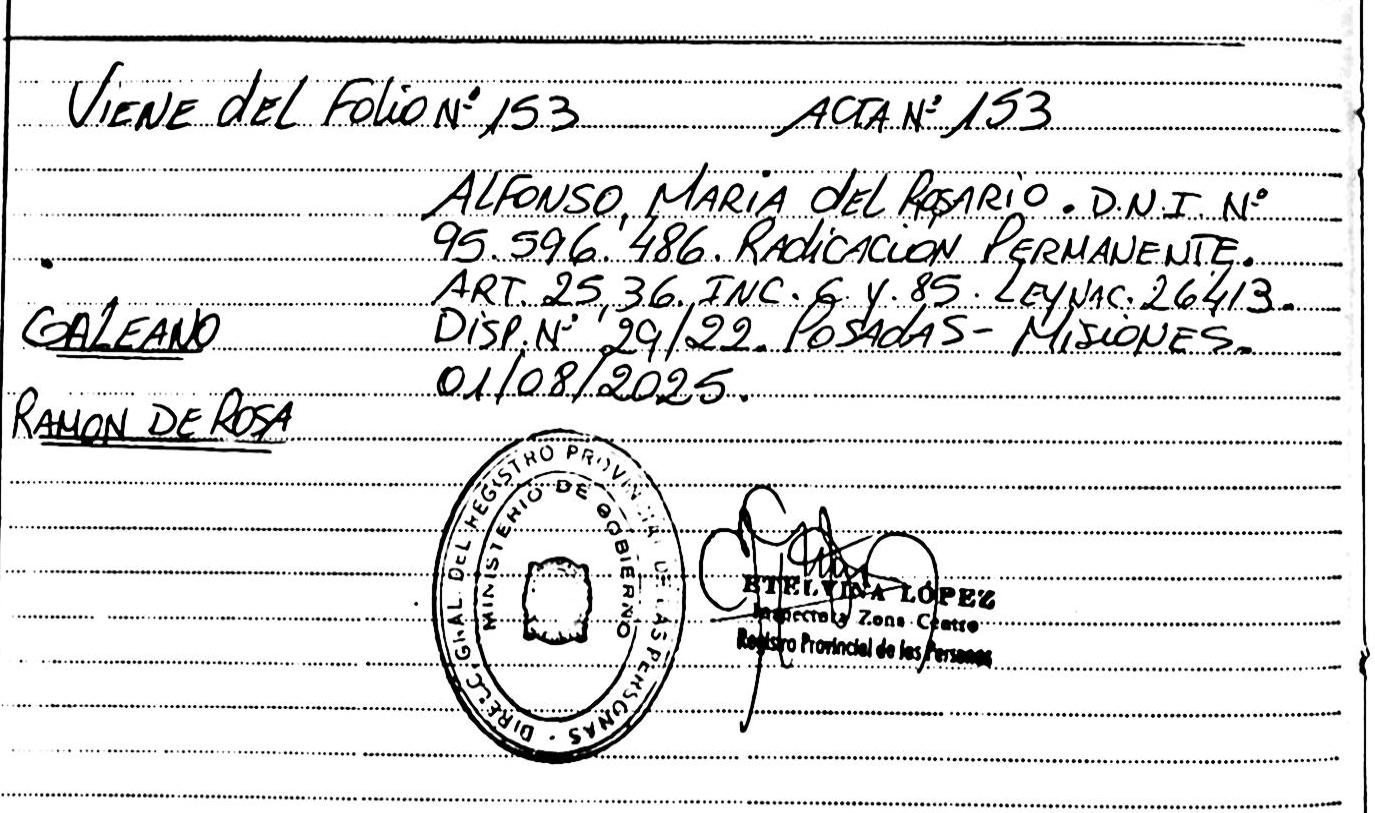 Viene del Folio Nº 153 ACTA Nº 153
ALFONSO, MARIA del ROSARIO. D.N.I. Nº
95.596.486. RAdicACioN PERMANENTE.
ART. 25,36. INC. 6 y. 85. LEY NAC. 26413.
GALEANO
DISP. Nº 29/22. POSAdAS - MISIONES.
01/08/2025.
RAMON DE ROSA
DIREC. GRAL DEL REGISTRO PROVINCIAL DE LAS PERSONAS
MINISTERIO DE GOBIERNO
ETELVINA LÓPEZ
Inspectora Zona Centro
Registro Provincial de las Personas